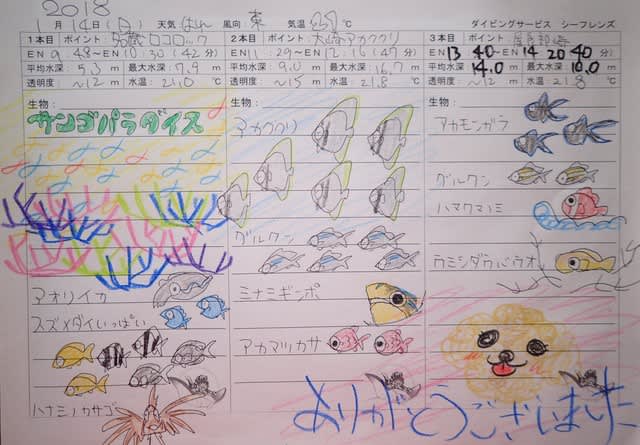 2018
1月14日(日) 天気 はれ 風向 東 気温 ℃ ダイビングサービス シーフレンズ
1本目 ポイント 名蔵ロコロック
EN 9:48〜EX 10:30 (42分)
平均水深 5.3m 最大水深 7.9m
透明度 〜12m 水温 21.0℃
生物:
サンゴパラダイス
アオリイカ
スズメダイいっぱい
ハナミノカサゴ
2本目 ポイント 大崎アカククリ
EN 11:29〜EN 12:16 (47分)
平均水深 9.0m 最大水深 16.7m
透明度 〜15m 水温 21.8℃
生物:
アカククリ
グルクン
ミナミギンポ
アカマツカサ
3本目 ポイント
EN 13 40〜EN 14 20 (40分)
平均水深 14.0m 最大水深 16.0m
透明度 〜12m 水温 21.8℃
生物:
アカモンガラ
グルクン
ハマクマノミ
ウミシダウバウオ
ありがとうございました